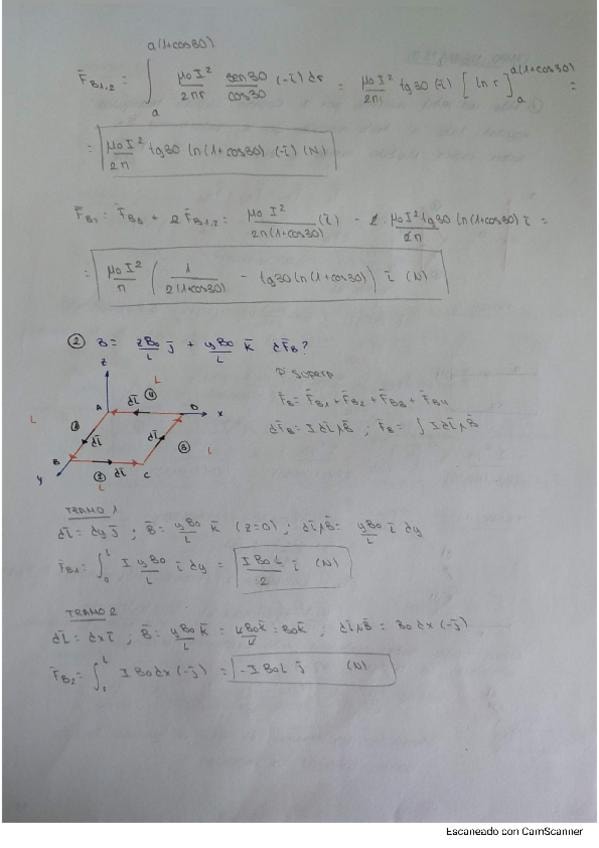 F̄B1,2 = ∫ₐ^{a(1+cos30)} μ₀I²/2πr sen30/cos30 (-ī) dr = μ₀I²/2π tg30 (ī) [ln r]ₐ^{a(1+cos30)} =
= μ₀I²/2π tg30 ln(1+cos30) (-ī) (N)
F̄B1 = F̄B3 + 2 F̄B1,2 = μ₀I²/2π(1+cos30) (ī) - 2 · μ₀I² tg30/2π ln(1+cos30) ī =
= μ₀I²/π ( 1/2(1+cos30) - tg30 ln(1+cos30) ) ī (N)
② B = zB₀/L j̄ + yB₀/L k̄ dF̄B?
z
L
④
A
dl̄
D
x
L
①
dl̄
dl̄
③
L
B
y
②
dl̄
C
L
P superp
F̄B = F̄B1 + F̄B2 + F̄B3 + F̄B4
dF̄B = I dl̄ ∧ B̄ ; F̄B = ∫ I dl̄ ∧ B̄
TRAMO 1
dl̄ = dy j̄ ; B̄ = yB₀/L k̄ (z=0) ; dl̄∧B̄ = yB₀/L ī dy
F̄B1 = ∫₀^L I yB₀/L ī dy = I B₀ L/2 ī (N)
TRAMO 2
dl̄ = dx ī ; B̄ = yB₀/L k̄ = LB₀k̄/L = B₀k̄ ; dl̄∧B̄ = B₀ dx (-j̄)
F̄B2 = ∫^L I B₀ dx (-j̄) = -I B₀ L j̄ (N)
Escaneado con CamScanner